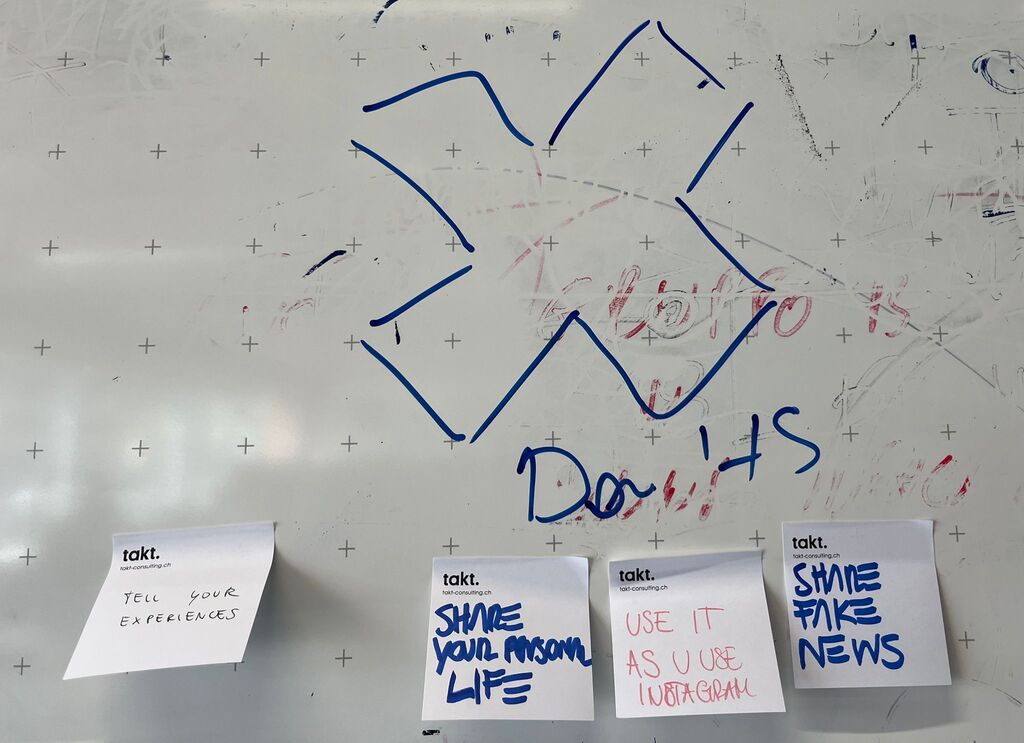 Don'ts
takt.
takt-consulting.ch
TELL YOUR
EXPERIENCES
takt.
takt-consulting.ch
SHARE
YOUR PERSONAL
LIFE
takt.
takt-consulting.ch
USE IT
AS U USE
INSTAGRAM
takt.
takt-consulting.ch
SHARE
FAKE
NEWS